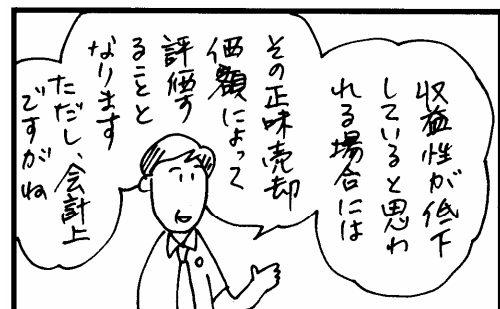 収益性が低下
していると思わ
れる場合には
その正味売却
価額によって
評価す
ることと
なります
ただし、会計上
ですがね